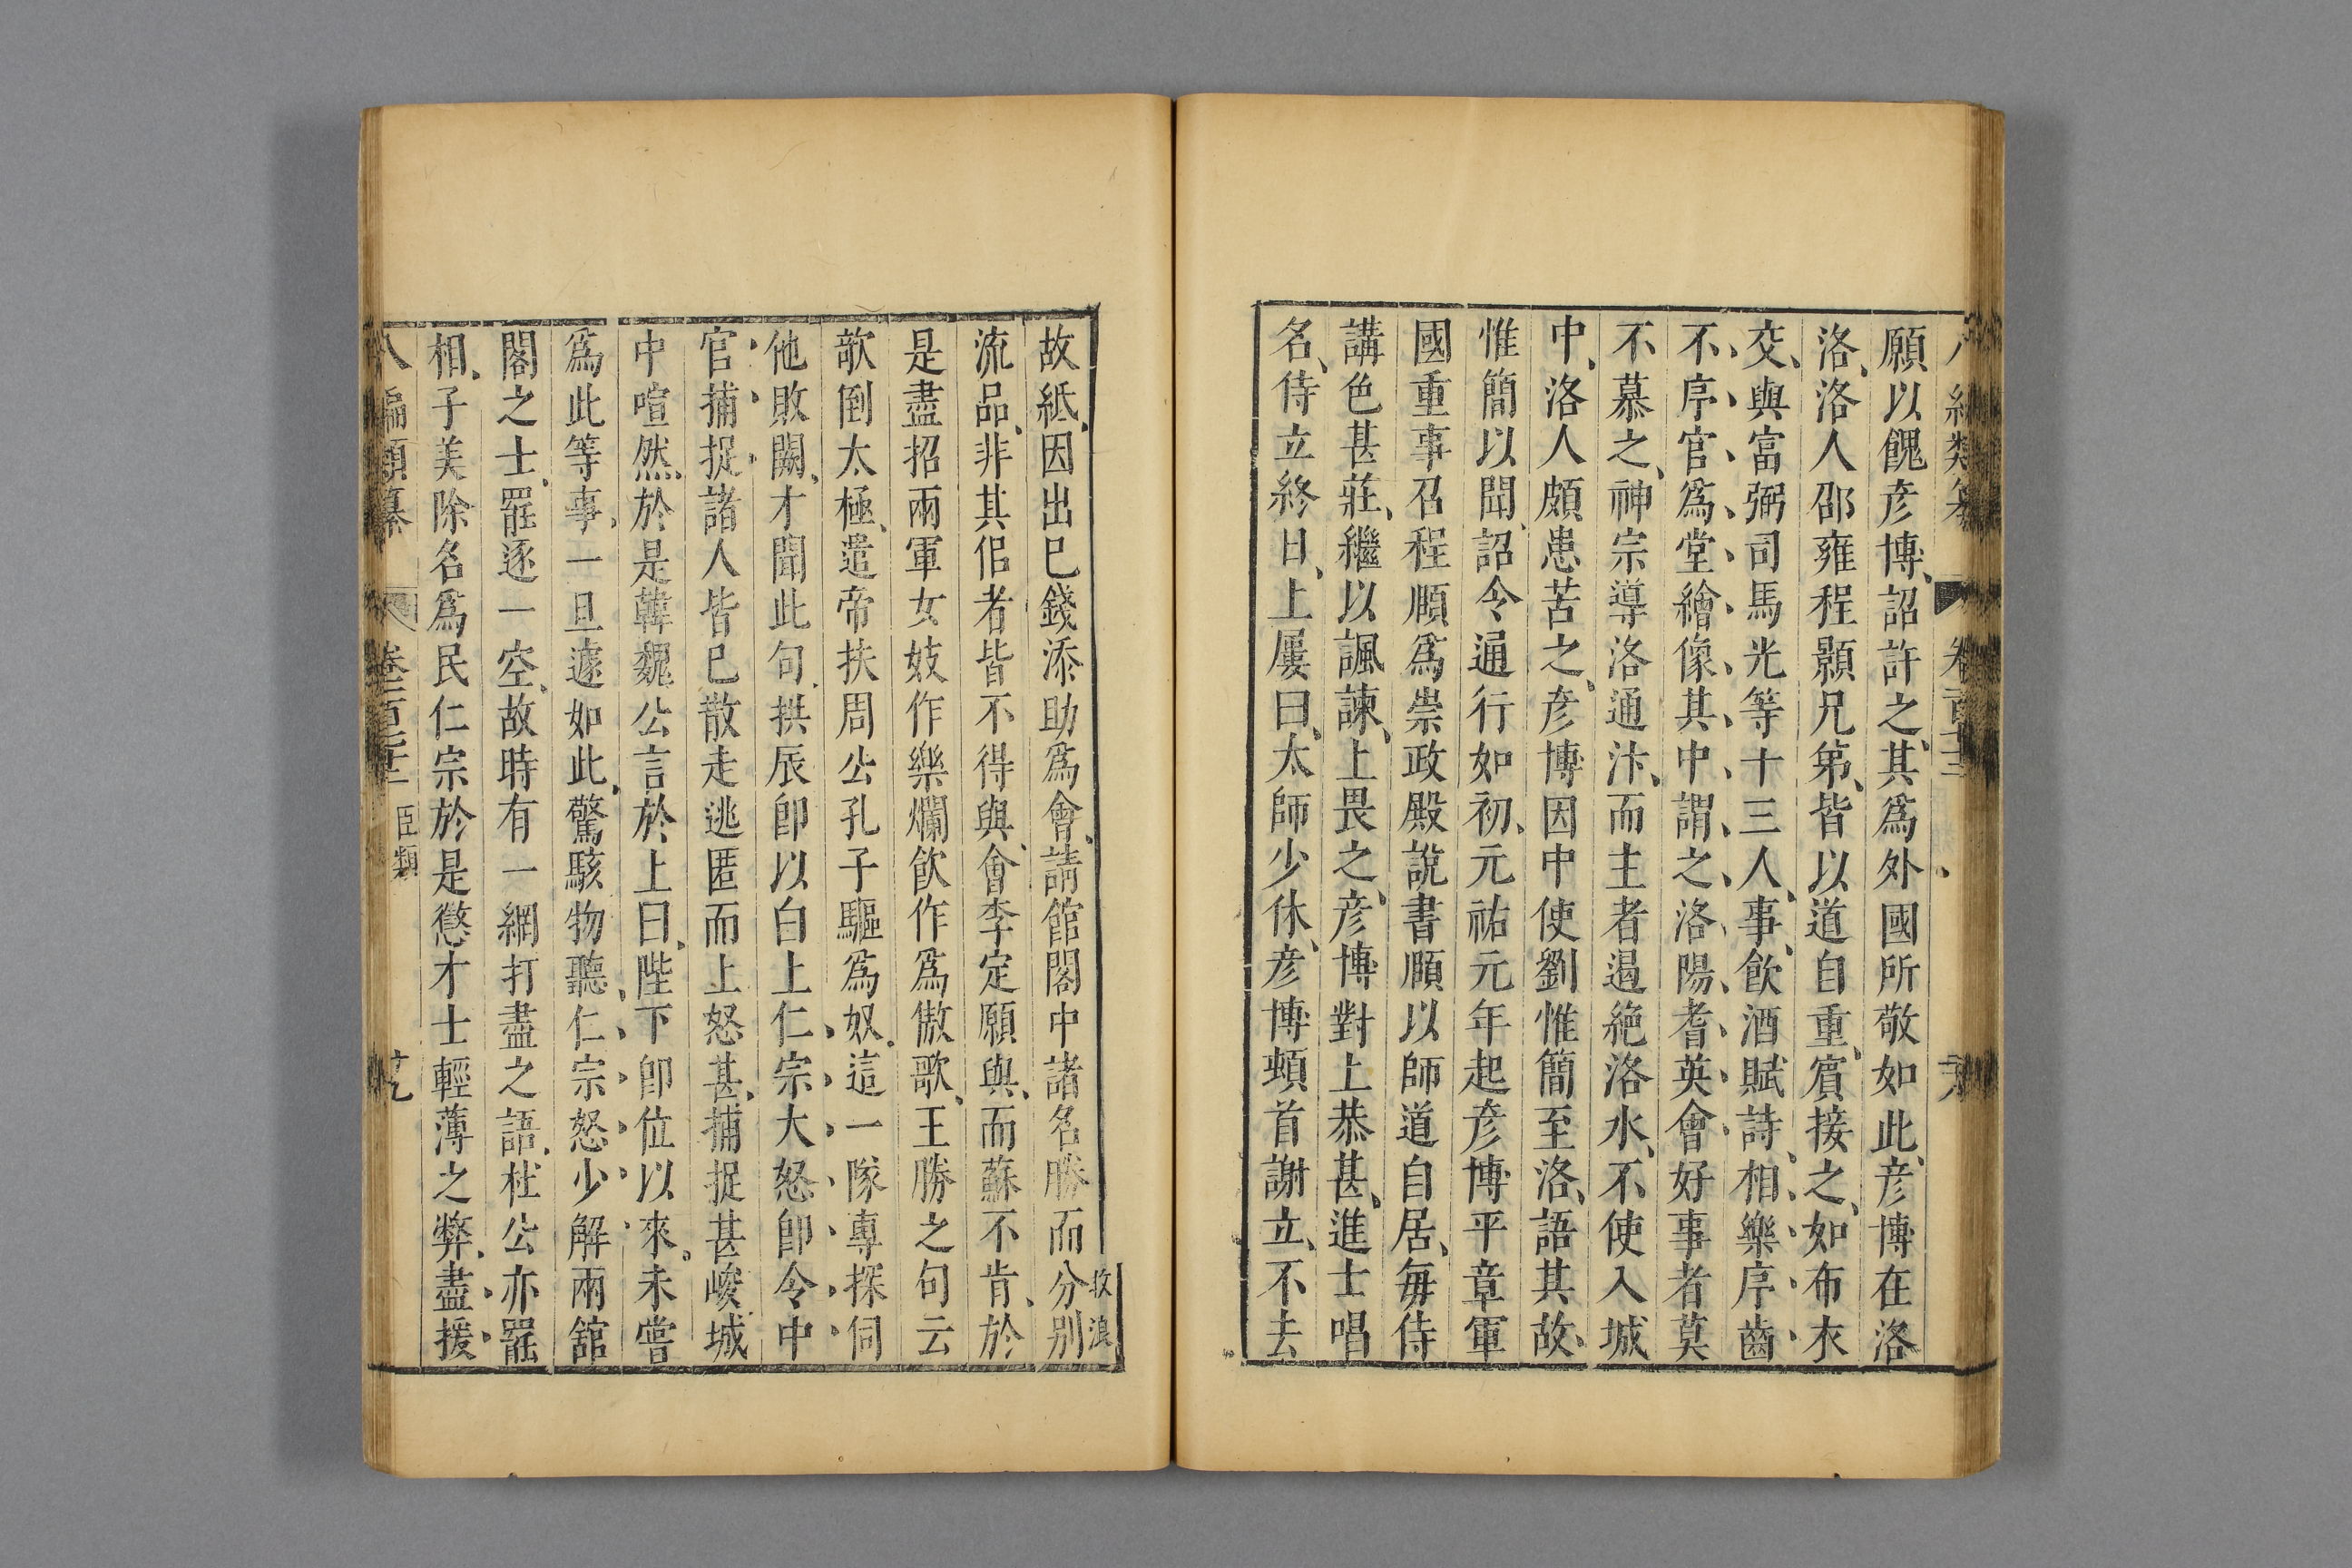 願以餽彥博詔許之其爲外國所敬如此彥博在洛
洛洛人邵雍程顥兄弟皆以道自重賔接之如布衣
交與富弼司馬光等十三人事飲酒賦詩相樂序齒
不序官爲堂繪像其中謂之洛陽耆英會好事者莫
不慕之神宗導洛通汴而主者遏絶洛水不使入城
中洛人頗患苦之彥博因中使劉惟簡至洛語其故
惟簡以聞詔令通行如初元祐元年起彥博平章軍
國重事召程頤爲崇政殿說書頤以師道自居每侍
講色甚莊繼以諷諫上畏之彥博對上恭甚進士唱
名侍立終日上屢曰太師少休彥博頓首謝立不去
故紙因出已錢添助爲會請館閣中諸名勝而分別
流品非其侶者皆不得與會李定願與而蘇不肯於
是盡招兩軍女妓作樂爛飲作爲傲歌王勝之句云
欹倒太極遣帝扶周公孔子驅爲奴這一隊專探伺
他敗闕才聞此句拱辰卽以白上仁宗大怒卽令中
官捕捉諸人皆已散走逃匿而上怒甚捕捉甚峻城
中喧然於是韓魏公言於上曰陛下卽位以來未嘗
爲此等事一旦遽如此驚駭物聽仁宗怒少解兩舘
閣之士罷逐一空故時有一網打盡之語杜公亦罷
相子美除名爲民仁宗於是懲才士輕薄之弊盡援
八編類纂 卷二百二十三 臣類